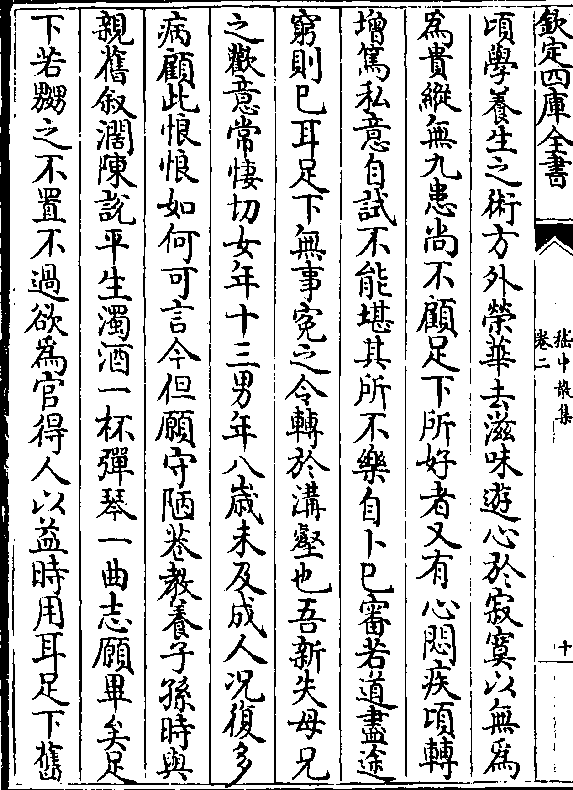 欽定四庫全書
嵇中散集
卷二
十
頃學養生之術方外榮華去滋味遊心於寂寞以無爲
爲貴縱無九患尚不顧足下所好者又有心悶疾頃轉
增篤私意自試不能堪其所不樂自卜已審若道盡途
窮則已耳足下無事寃之令轉於溝壑也吾新失母兄
之歡意常悽切女年十三男年八歳未及成人况復多
病顧此悢悢如何可言今但願守陋巷教養子孫時與
親舊叙濶陳說平生濁酒一杯彈琴一曲志願畢矣足
下若嬲之不置不過欲爲官得人以益時用耳足下舊